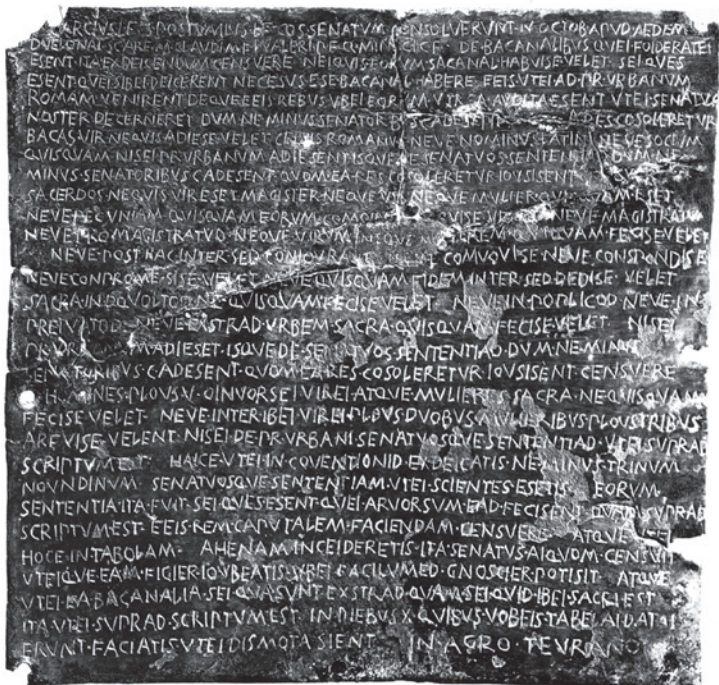 MARCIVS·L·F·S·POSTVMIVS·L·F·COS·SENATVM·CONSOLVERVNT·N·OCTOB·APVD·AEDEM
DVELONAI·SC·ARF·M·CLAVDI·M·F·L·VALERI·P·F·Q·MINVCI·C·F·DE·BACANALIBVS·QVEI·FOIDERATEI
ESENT·ITA·EXDEICENDVM·CENSVERE·NEIQVIS·EORVM·SACANAL·HABVISE·VELET·SEI·QVES
ESENT·QVEI·SIBEI·DEICERENT·NECESVS·ESE·BACANAL·HABERE·EEIS·VTEI·AD·PR·VRBANVM
ROMAM·VENIRENT·DEQVE·EEIS·REBVS·VBEI·EORVM·VTR·A·AVDITA·ESENT·VTEI·SENATVS
NOSTER·DECERNERET·DVM·NE·MINVS·SENATORBVS·C·ADESENT·ADES·COSOLERETVR
BACAS·VIR·NEQVIS·ADIESE·VELET·CEIVIS·ROMANVS·NEVE·NOMINVS·LATINI·NEVE·SOCIVM
QVISQVAM·NISEI·PR·VRBANVM·ADIESENT·ISQVE·DE·SENATVOS·SENTENTIAD·DVM·NE
MINVS·SENATORIBVS·C·ADESENT·QVOM·EA·RES·COSOLERETVR·IOVSISENT
SACERDOS·NEQVIS·VIR·ESET·MAGISTER·NEQVE·VIR·NEQVE·MVLIER·QVISQVAM·ESET
NEVE·PECVNIAM·QVISQVAM·EORVM·COMOINEM·HABVISE·VELET·NEVE·MAGISTRATVM
NEVE·PRO·MAGISTRATVD·NEQVE·VIRVM·NEQVE·MVLIEREM·QVIQVAM·FECISE·VELET
NEVE·POST·HAC·INTER·SED·CONIOVRASE·NEVE·COMVOVISE·NEVE·CONSPONDISE
NEVE·CONPROMESISE·VELET·NEVE·QVISQVAM·FIDEM·INTER·SED·DEDISE·VELET
SACRA·IN·DQVOLTOD·NE·QVISQVAM·FECISE·VELET·NEVE·IN·POPLICOD·NEVE·IN
PREIVATOD·NEVE·EXSTRAD·VRBEM·SACRA·QVISQVAM·FECISE·VELET·NISEI
PR·VRBANVM·ADIESET·ISQVE·DE·SENATVOS·SENTENTIAD·DVM·NE·MINVS
SENATORIBVS·C·ADESENT·QVOM·EA·RES·COSOLERETVR·IOVSISENT·CENSVERE
HOMINES·PLOVS·V·OINVORSEI·VIREI·ATQVE·MVLIERES·SACRA·NE·QVISQVAM
FECISE·VELET·NEVE·INTER·IBEI·VIREI·PLOVS·DVOBVS·MVLIERIBVS·PLOVS·TRIBVS
ARFVISE·VELENT·NISEI·DE·PR·VRBANI·SENATVOSQVE·SENTENTIAD·VTEI·SVPRAD
SCRIPTVM·EST·HAICE·VTEI·IN·COVENTIONID·EXDEICATIS·NE·MINVS·TRINVM
NOVNDINVM·SENATVOSQVE·SENTENTIAM·VTEI·SCIENTES·ESETIS·EORVM
SENTENTIA·ITA·FVIT·SEI·QVES·ESENT·QVEI·ARVORSVM·EAD·FECISENT·QVAM·SVPRAD
SCRIPTVM·EST·EEIS·REM·CAPVTALEM·FACIENDAM·CENSVERE·ATQVE·VTEI
HOCE·IN·TABOLAM·AHENAM·INCEIDERETIS·ITA·SENATVS·AIQVOM·CENSVIT
VTEIQVE·EAM·FIGIER·IOVBEATIS·VBEI·FACILVMED·GNOSCIER·POTISIT·ATQVE
VTEI·EA·BACANALIA·SEI·QVA·SVNT·EXSTRAD·QVAM·SEI·QVID·IBEI·SACRI·EST
ITA·VTEI·SVPRAD·SCRIPTVM·EST·IN·DIEBVS·X·QVIBVS·VOBEIS·TABELAI·DATAI
ERVNT·FACIATIS·VTEI·DISMOTA·SIENT·IN·AGRO·TEVRANO